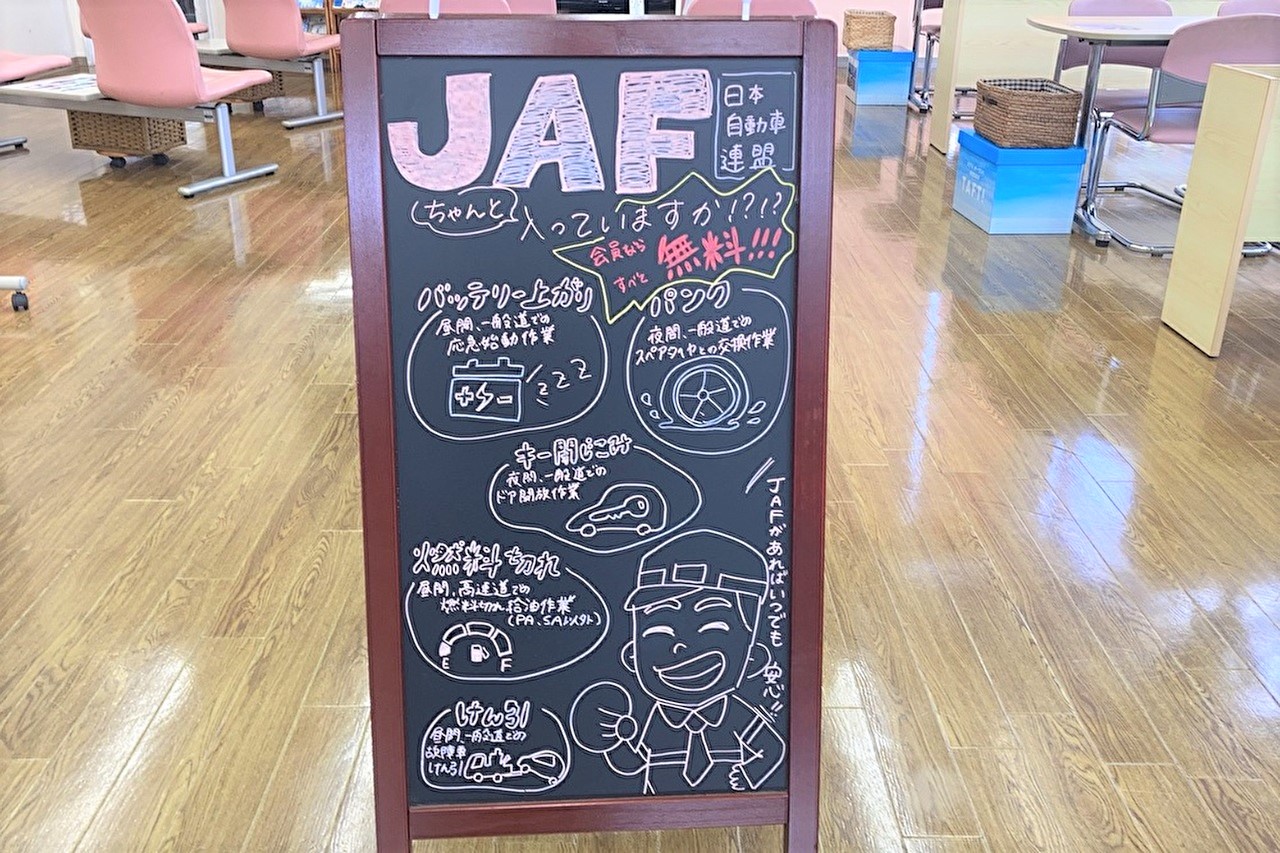 JAF
日本
自動車
連盟
ちゃんと
入っていますか!?!?
会員なら
すべて
無料!!!
バッテリー上がり
昼間、一般道での
応急始動作業
パンク
夜間、一般道での
スペアタイヤとの交換作業
キー閉じこみ
夜間、一般道での
ドア開放作業
燃料切れ
昼間、高速道での
燃料切れ給油作業
(PA、SA以外)
E F
けん引
昼間、一般道での
故障車
けん引
JAFがあればいつでも安心!!
TAFT